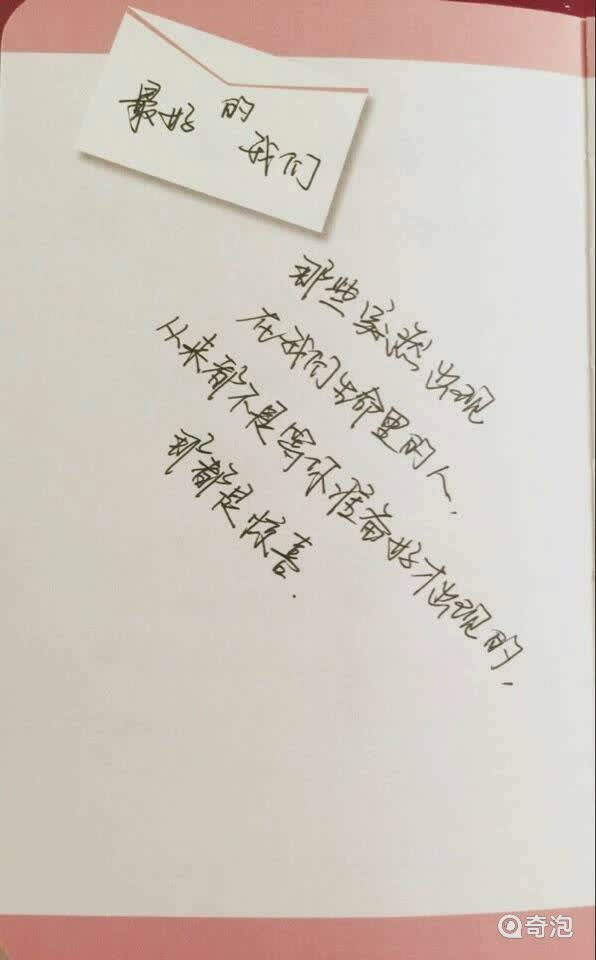 最好的我们
那些突然出现
在我们生命里的人,
从来都不是等你准备好才出现的.
那都是惊喜.
奇泡